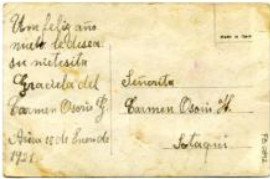 Un feliz año
nuebo le desea
su nietesita
Graciela del
Carmen Osorio G.
10 de Enero de
1928
Señorita
Carmen Osorio H.
Sotaquí